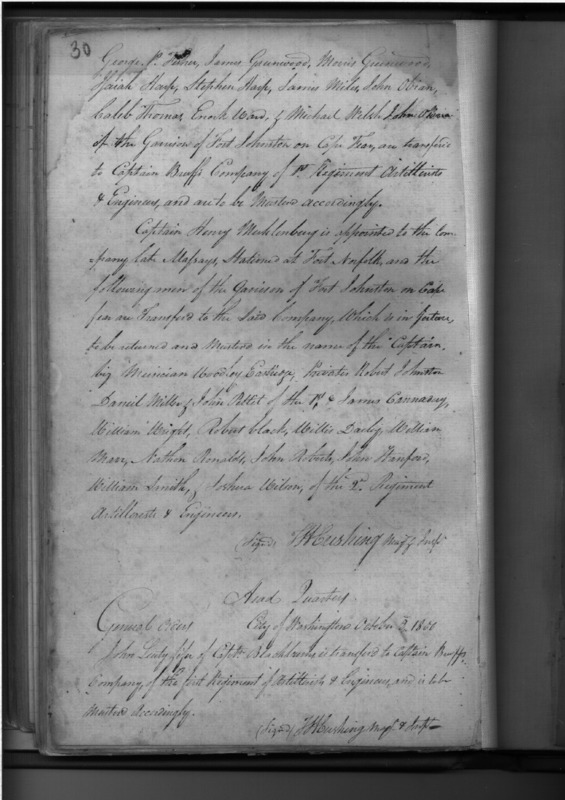 30
George P. Fisher, James Greenwood, Morris Greenwood,
Isaiah Harp, Stephen Harp, James Miles, John Obrian,
Caleb Thomas, Enoch Ward, & Michael Welsh John
of the Garrison of Fort Johnston on Cape Fear, are transferd
to Captain Bruffs Company of 1st Regiment Artillerists
& Engineers, and are to be Mustered accordingly.
Captain Henry Mecklenburg is appointed to the Com-
pany late Massays, Stationed at Fort Norfolk, and the
following men of the Garrison of Fort Johnston on Cape
fear are Transferd to the Said Company, Which is in future,
to be returned and Mustered in the name of the Captain.
Viz Musician Woodley Privates Robert Johnston
Daniel Miller, John Pettet of the 1st & James Cannaday,
William Wright, Robert black, Willis Darby, William
Marr, Nathan Ronalds, John Roberts, John Hanford,
William Smith, & Joshua Wilson, of the 2d. Regiment
Artillerists & Engineers.
(Signed) T H Cushing Majr & Inspr
Head Quarters
General orders City of Washington October 1801
John fifer of Captn Blackburns is transferd to Captain Bruffs
Company of the first Regiment of Artillerists & Engineers, and is to be
Mustered Accordingly.
(Signed) T H Cushing Majr. & Inspr